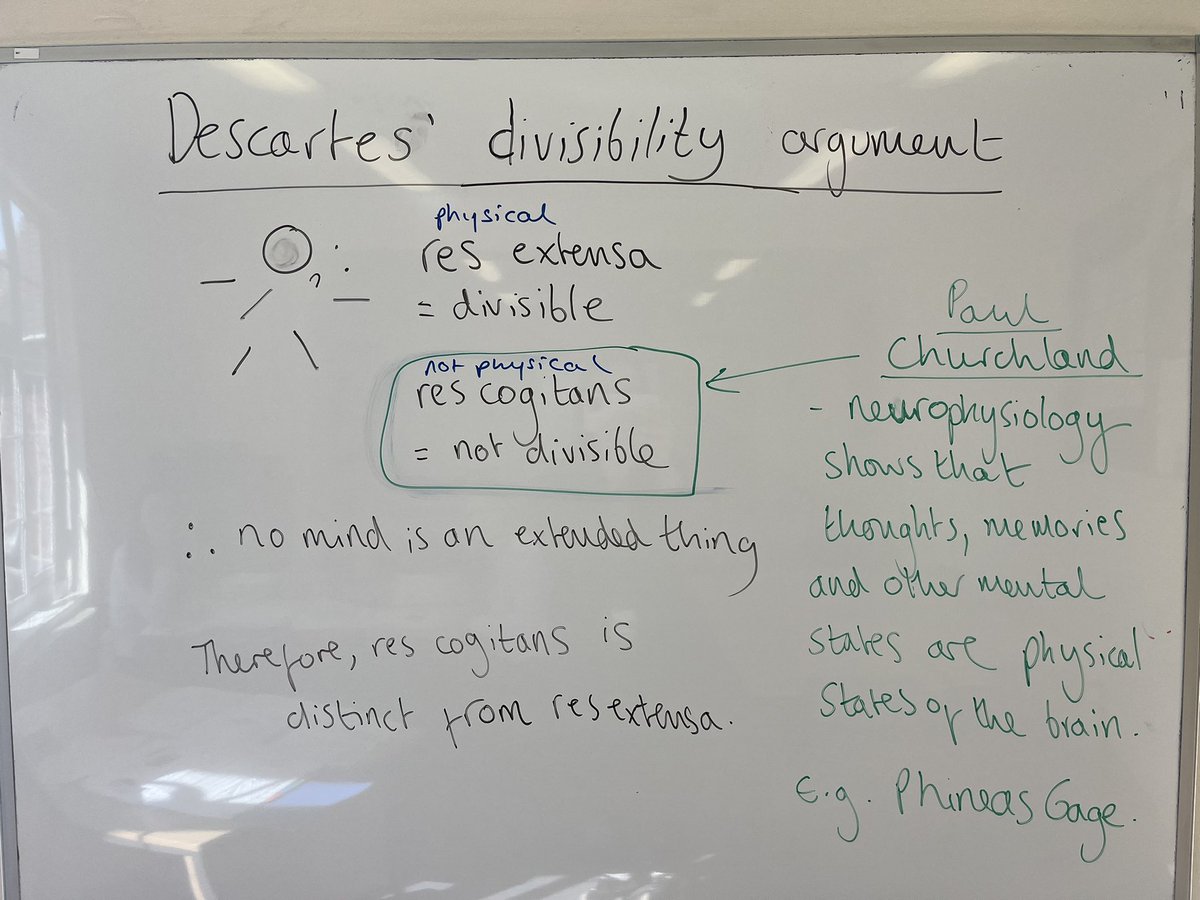 Descartes' divisibility argument
physical
res extensa
= divisible
not physical
res cogitans
= not divisible
∴ no mind is an extended thing
Therefore, res cogitans is
distinct from res extensa.
Paul
Churchland
- neurophysiology
shows that
thoughts, memories
and other mental
states are physical
states of the brain.
E.g. Phineas Gage.